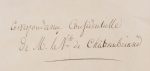 Correspondance Confidentielle
de M. le Vte de Chateaubriand